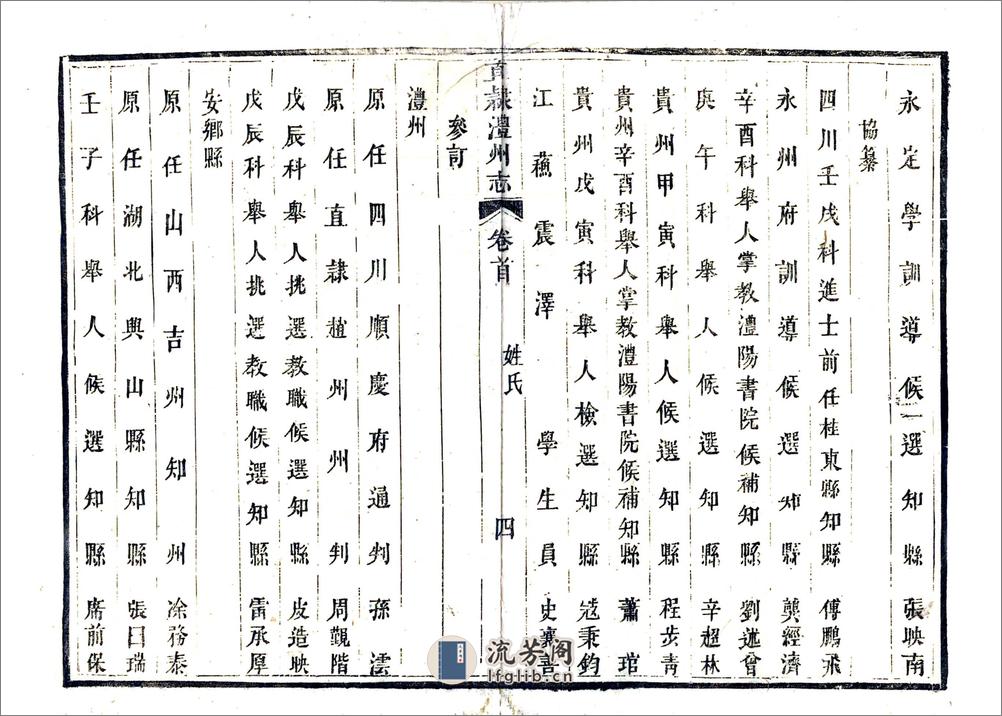 永定學訓導候選知縣張映南
協纂
四川壬戌科進士前任桂東縣知縣傅鵬飛
永州府訓導候選知縣龔經濟
辛酉科舉人掌教澧陽書院候補知縣劉述曾
庚午科舉人候選知縣辛超林
貴州甲寅科舉人候選知縣程步青
貴州辛酉科舉人掌教澧陽書院候補知縣蕭琯
貴州戊寅科舉人檢選知縣寇秉鈞
江蘇震澤學生員史襄書
直隸澧州志
卷首
姓氏
四
參訂
澧州
原任四川順慶府通判孫澐
原任直隸趙州州判周觀階
戊辰科舉人挑選教職候選知縣皮造映
戊辰科舉人挑選教職候選知縣雷承厚
安鄉縣
原任山西吉州知州凃務泰
原任湖北興山縣知縣張日瑞
壬子科舉人候選知縣席前保
流芳阁
lfglib.cn